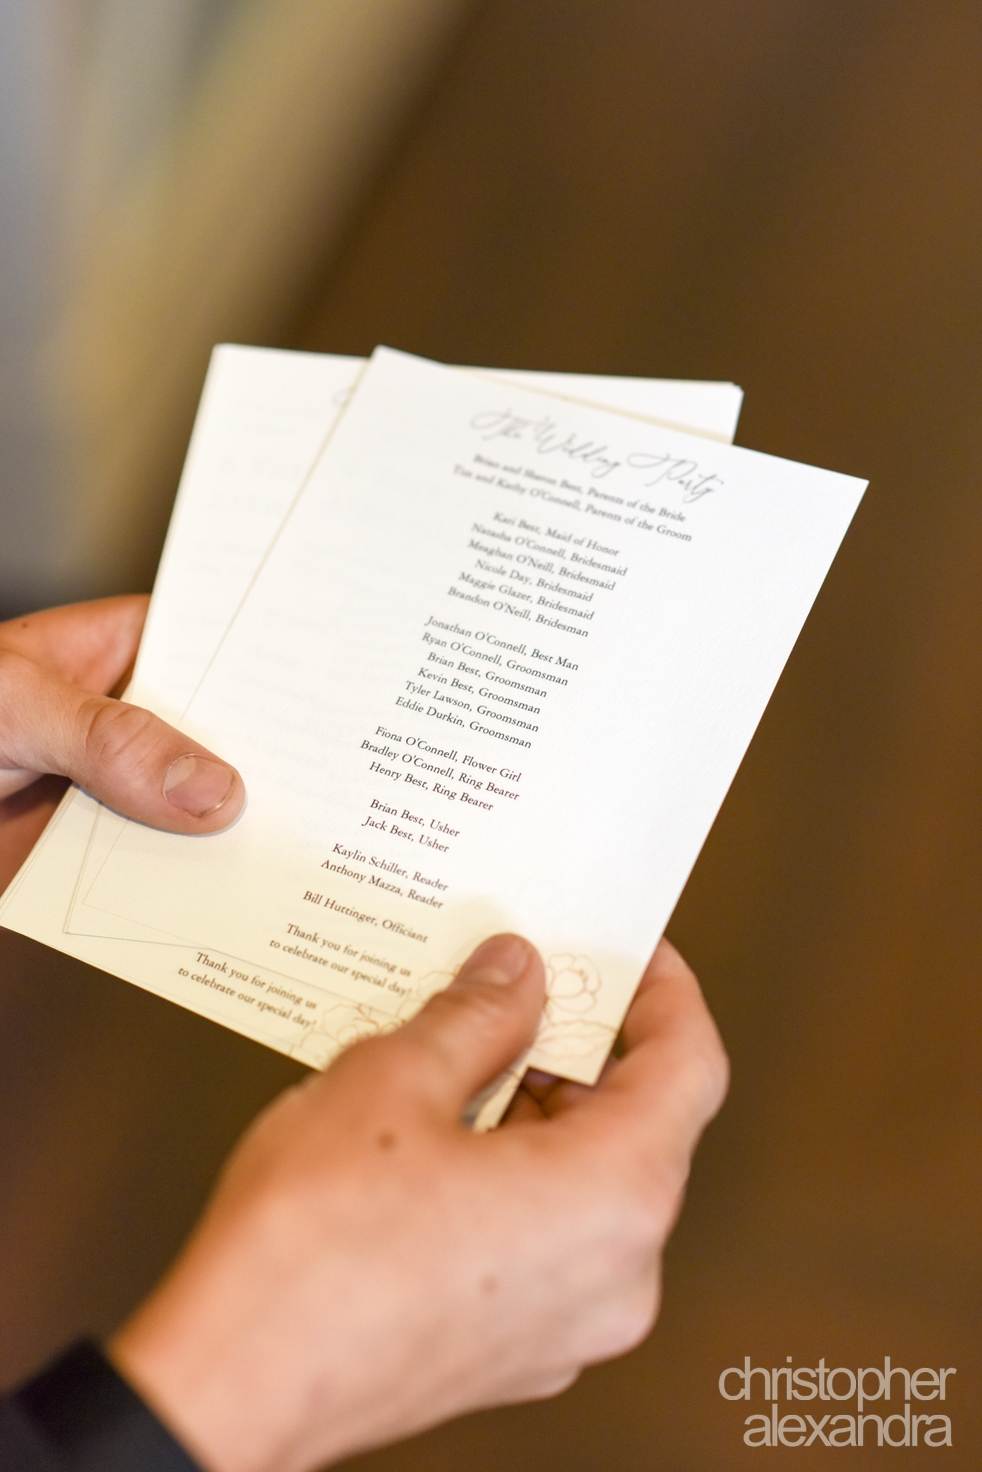 The Wedding Party
Brian and Sharon Best, Parents of the Bride
Tim and Kathy O'Connell, Parents of the Groom
Kari Best, Maid of Honor
Natasha O'Connell, Bridesmaid
Meaghan O'Neill, Bridesmaid
Nicole Day, Bridesmaid
Maggie Glazer, Bridesmaid
Brandon O'Neill, Bridesman
Jonathan O'Connell, Best Man
Ryan O'Connell, Groomsman
Brian Best, Groomsman
Kevin Best, Groomsman
Tyler Lawson, Groomsman
Eddie Durkin, Groomsman
Fiona O'Connell, Flower Girl
Bradley O'Connell, Ring Bearer
Henry Best, Ring Bearer
Brian Best, Usher
Jack Best, Usher
Kaylin Schiller, Reader
Anthony Mazza, Reader
Bill Huttinger, Officiant
Thank you for joining us
to celebrate our special day!
Thank you for joining us
to celebrate our special day!
christopher
alexandra